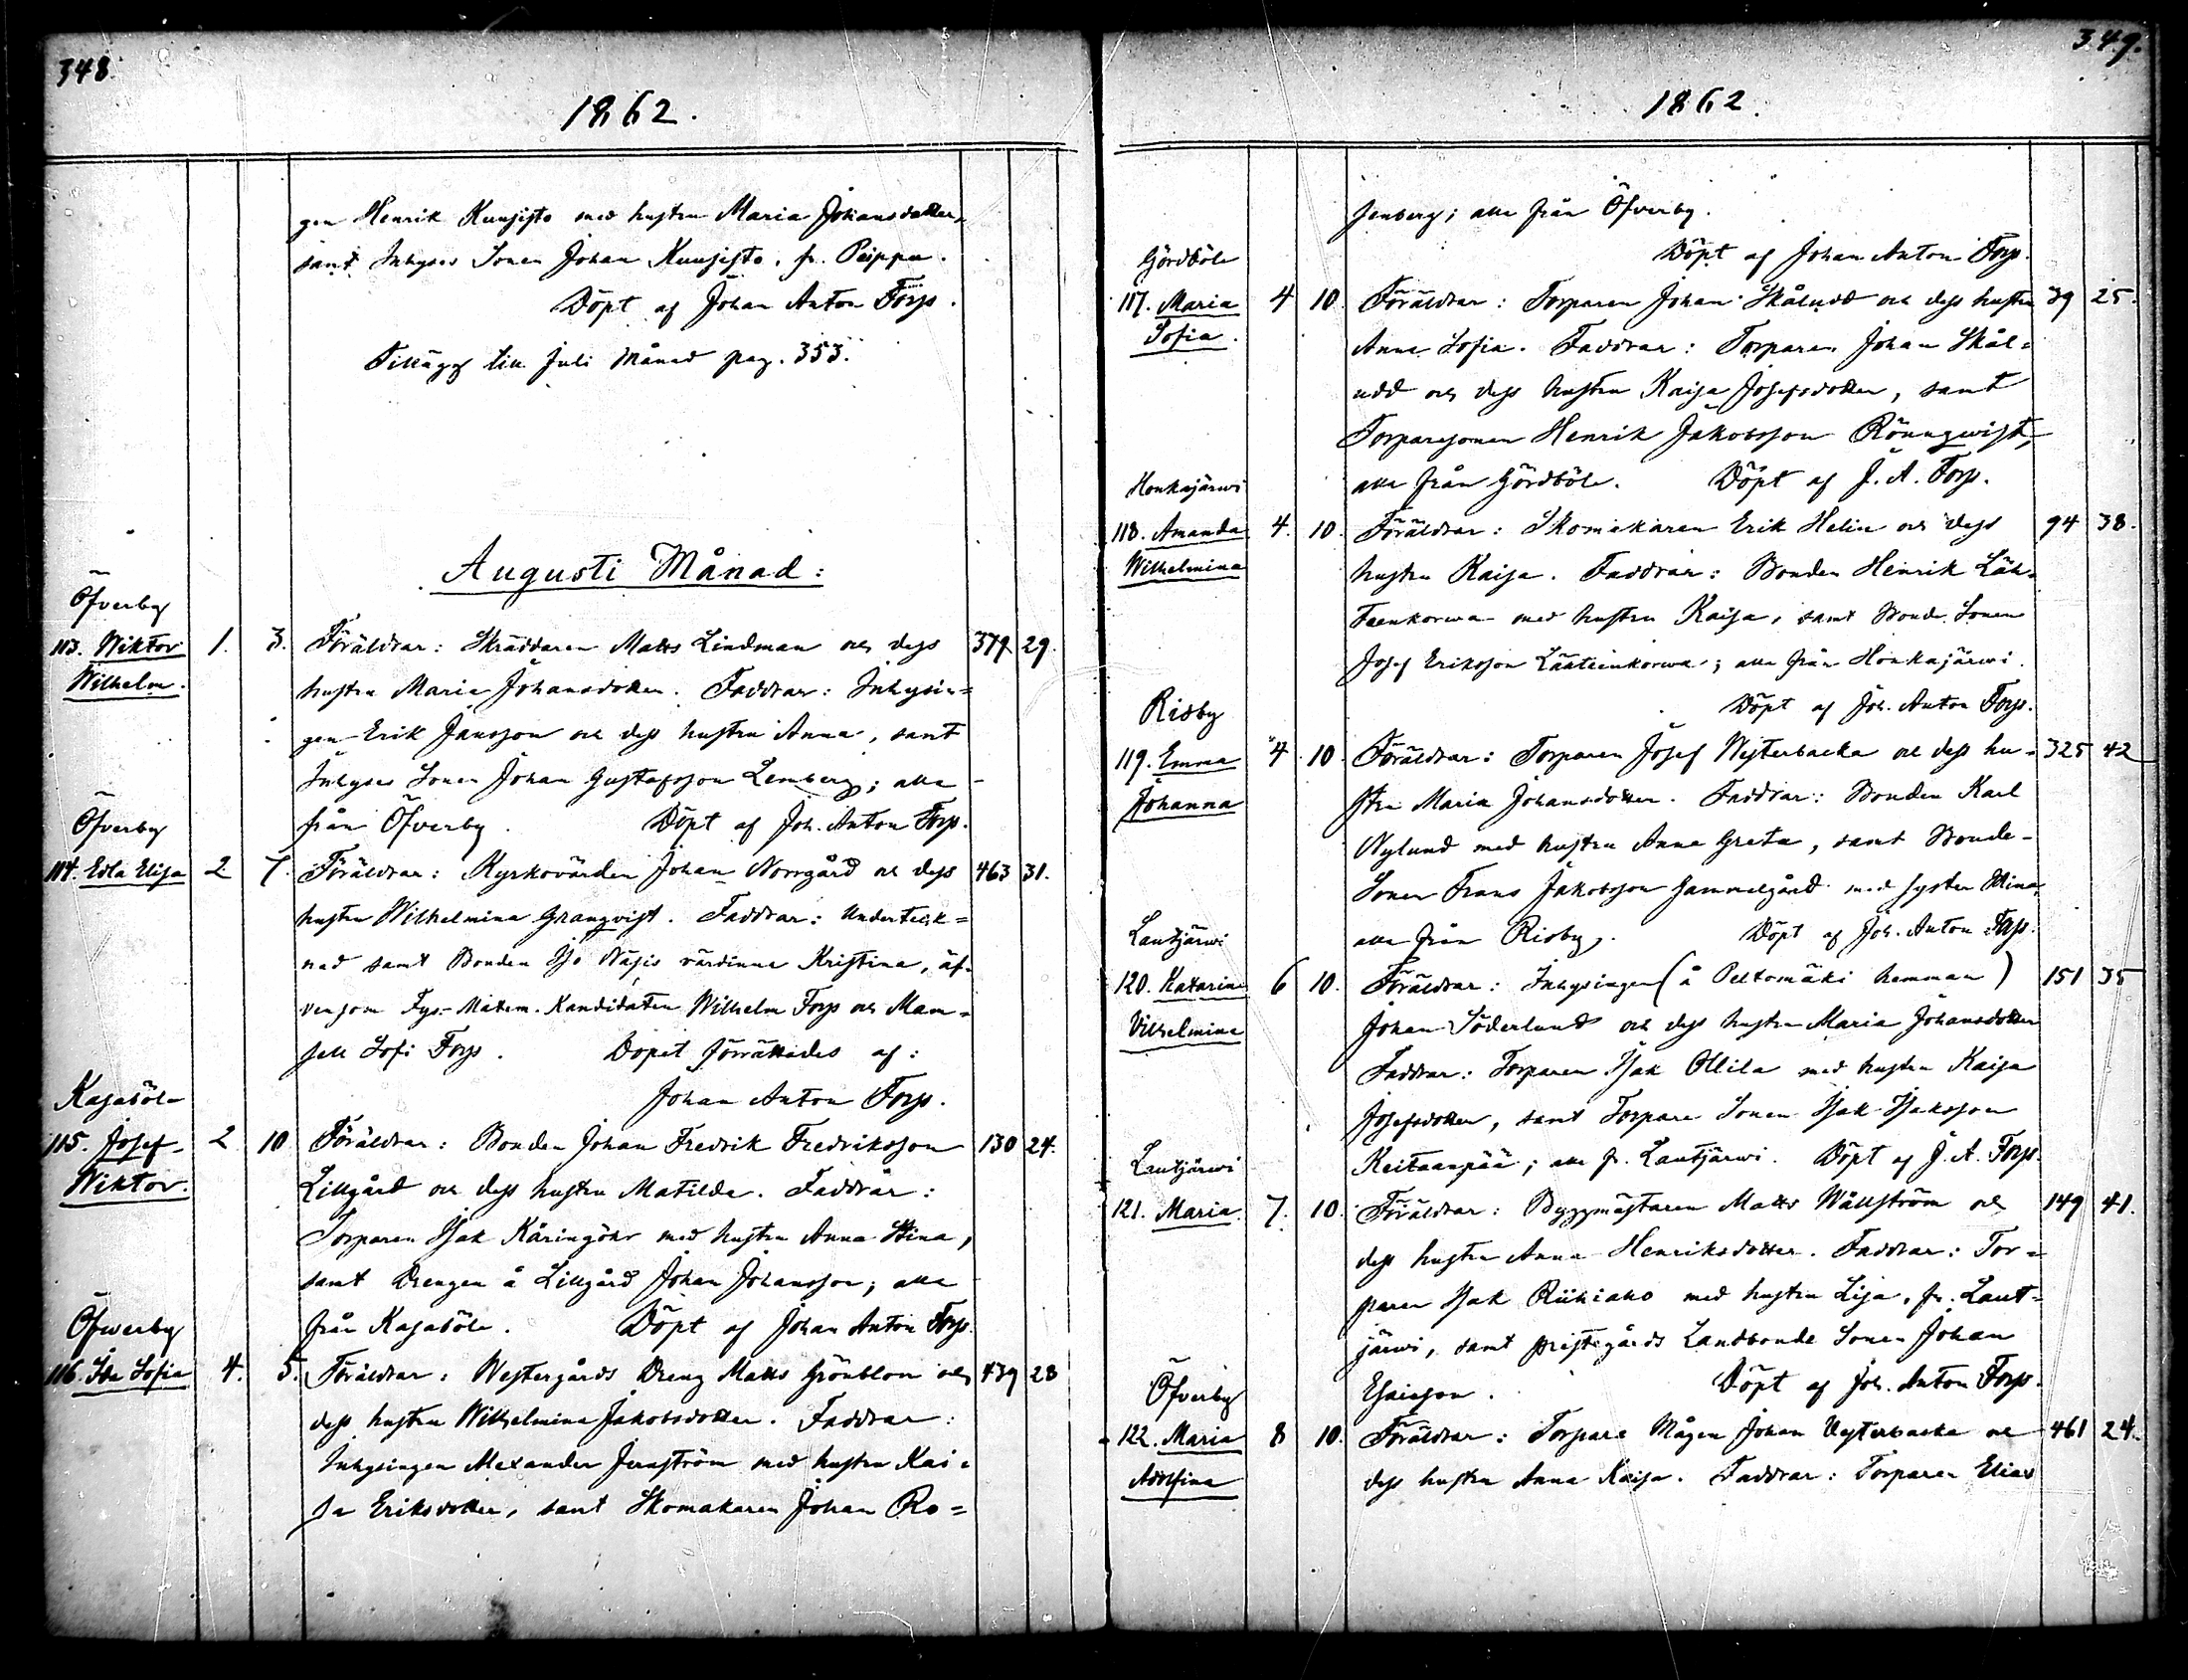 348.
1862.
gen Henrik Kunsisto med hustru Maria Johansdotter,
samt Inhyses Sonen Johan Kunsisto, fr. Peippu.
Döpt af Johan Anton Forss.
Tillägg till Juli Månad pag. 353.
Augusti Månad:
Öfverby
113. Wiktor 1. 3. Föräldrar: Skräddaren Matts Lindman och dess 379 29.
Wilhelm. hustru Maria Johansdotter. Faddrar: Inhysin=
gen Erik Jansson och dess hustru Anna, samt
Inhyses Sonen Johan Gustafsson Lemberg; alla
Öfverby från Öfverby. Döpt af Joh. Anton Forss.
114. Edla Elisa 2. 7. Föräldrar: Kyrkovärden Johan Norrgård och dess 463 31.
hustru Wilhelmina Granqvist. Faddrar: Underteck=
nad samt Bonden Iso Näsis värdinna Kristina, äf-
vensom Fys.-Matem. Kandidaten Wilhelm Forss och Mam=
sell Sofi Forss. Dopet förrättades af:
Kasaböle Johan Anton Forss.
115. Josef 2 10 Föräldrar: Bonden Johan Fredrik Fredriksson 130 24.
Wiktor. Lillgård och dess hustru Matilda. Faddrar:
Torparen Isak Käringöhr med hustru Anna Stina,
samt Drengen å Lillgård Johan Johansson; alla
Öfwerby från Kasaböle. Döpt af Johan Anton Forss.
116. Ida Sofia 4. 5. Föräldrar: Westergårds Dreng Matts Grönblom och 439 28
dess hustru Wilhelmina Jakobsdotter. Faddrar:
Inhysingen Alexander Jernström med hustru Kai=
sa Eriksdotter, samt Skomakaren Johan Ro=
349.
1862.
senberg; alla från Öfverby.
Gördböle Döpt af Johan Anton Forss.
117. Maria 4 10. Föräldrar: Torparen Johan Skåludd och dess hustru 39 25.
Sofia. Anna Sofia. Faddrar: Torparen Johan Skål=
udd och dess hustru Kaisa Josefsdotter, samt
Torparesonen Henrik Jakobsson Rönnqwist,
Honkajärwi alla från Gördböle. Döpt af J. A. Forss.
118. Amanda 4. 10. Föräldrar: Skomakaren Erik Helin och dess 94 38.
Wilhelmina hustru Kaisa. Faddrar: Bonden Henrik Läh-
teenkorwa med hustru Kaisa, samt Bonde Sonen
Josef Eriksson Lääteenkorwa; alla från Honkajärwi.
Risby Döpt af Joh. Anton Forss.
119. Emma 4 10 Föräldrar: Torparen Josef Westerbacka och dess hu- 325 42
Johanna stru Maria Johansdotter. Faddrar: Bonden Karl
Nylund med hustru Anna Greta, samt Bonde-
Sonen Frans Jakobsson Sammelgård med syster Stina,
Lautjärwi alla från Risby. Döpt af Joh. Anton Forss.
120. Katarina 6 10. Föräldrar: Inhysingen (å Peltomäki hemman) 151 35
Vilhelmina Johan Söderlund och dess hustru Maria Johansdotter
Faddrar: Torparen Isak Ollila med hustru Kaisa
Josefsdotter, samt Torpare Sonen Isak Isaksson
Lautjärwi Keitaanpää; alla fr. Lautjärwi. Döpt af J. A. Forss.
121. Maria 7. 10. Föräldrar: Byggmästaren Matts Wållström och 149 41.
dess hustru Anna Henriksdotter. Faddrar: Tor=
paren Isak Riihiaho med hustru Lisa, fr. Laut=
järwi, samt prestegårds Landbonde Sonen Johan
Öfverby Esaiasson. Döpt af Joh. Anton Forss.
122. Maria 8 10. Föräldrar: Torpare Mågen Johan Westerbacka och 461 24.
Adolfina dess hustru Anna Kaisa. Faddrar: Torparen Elias